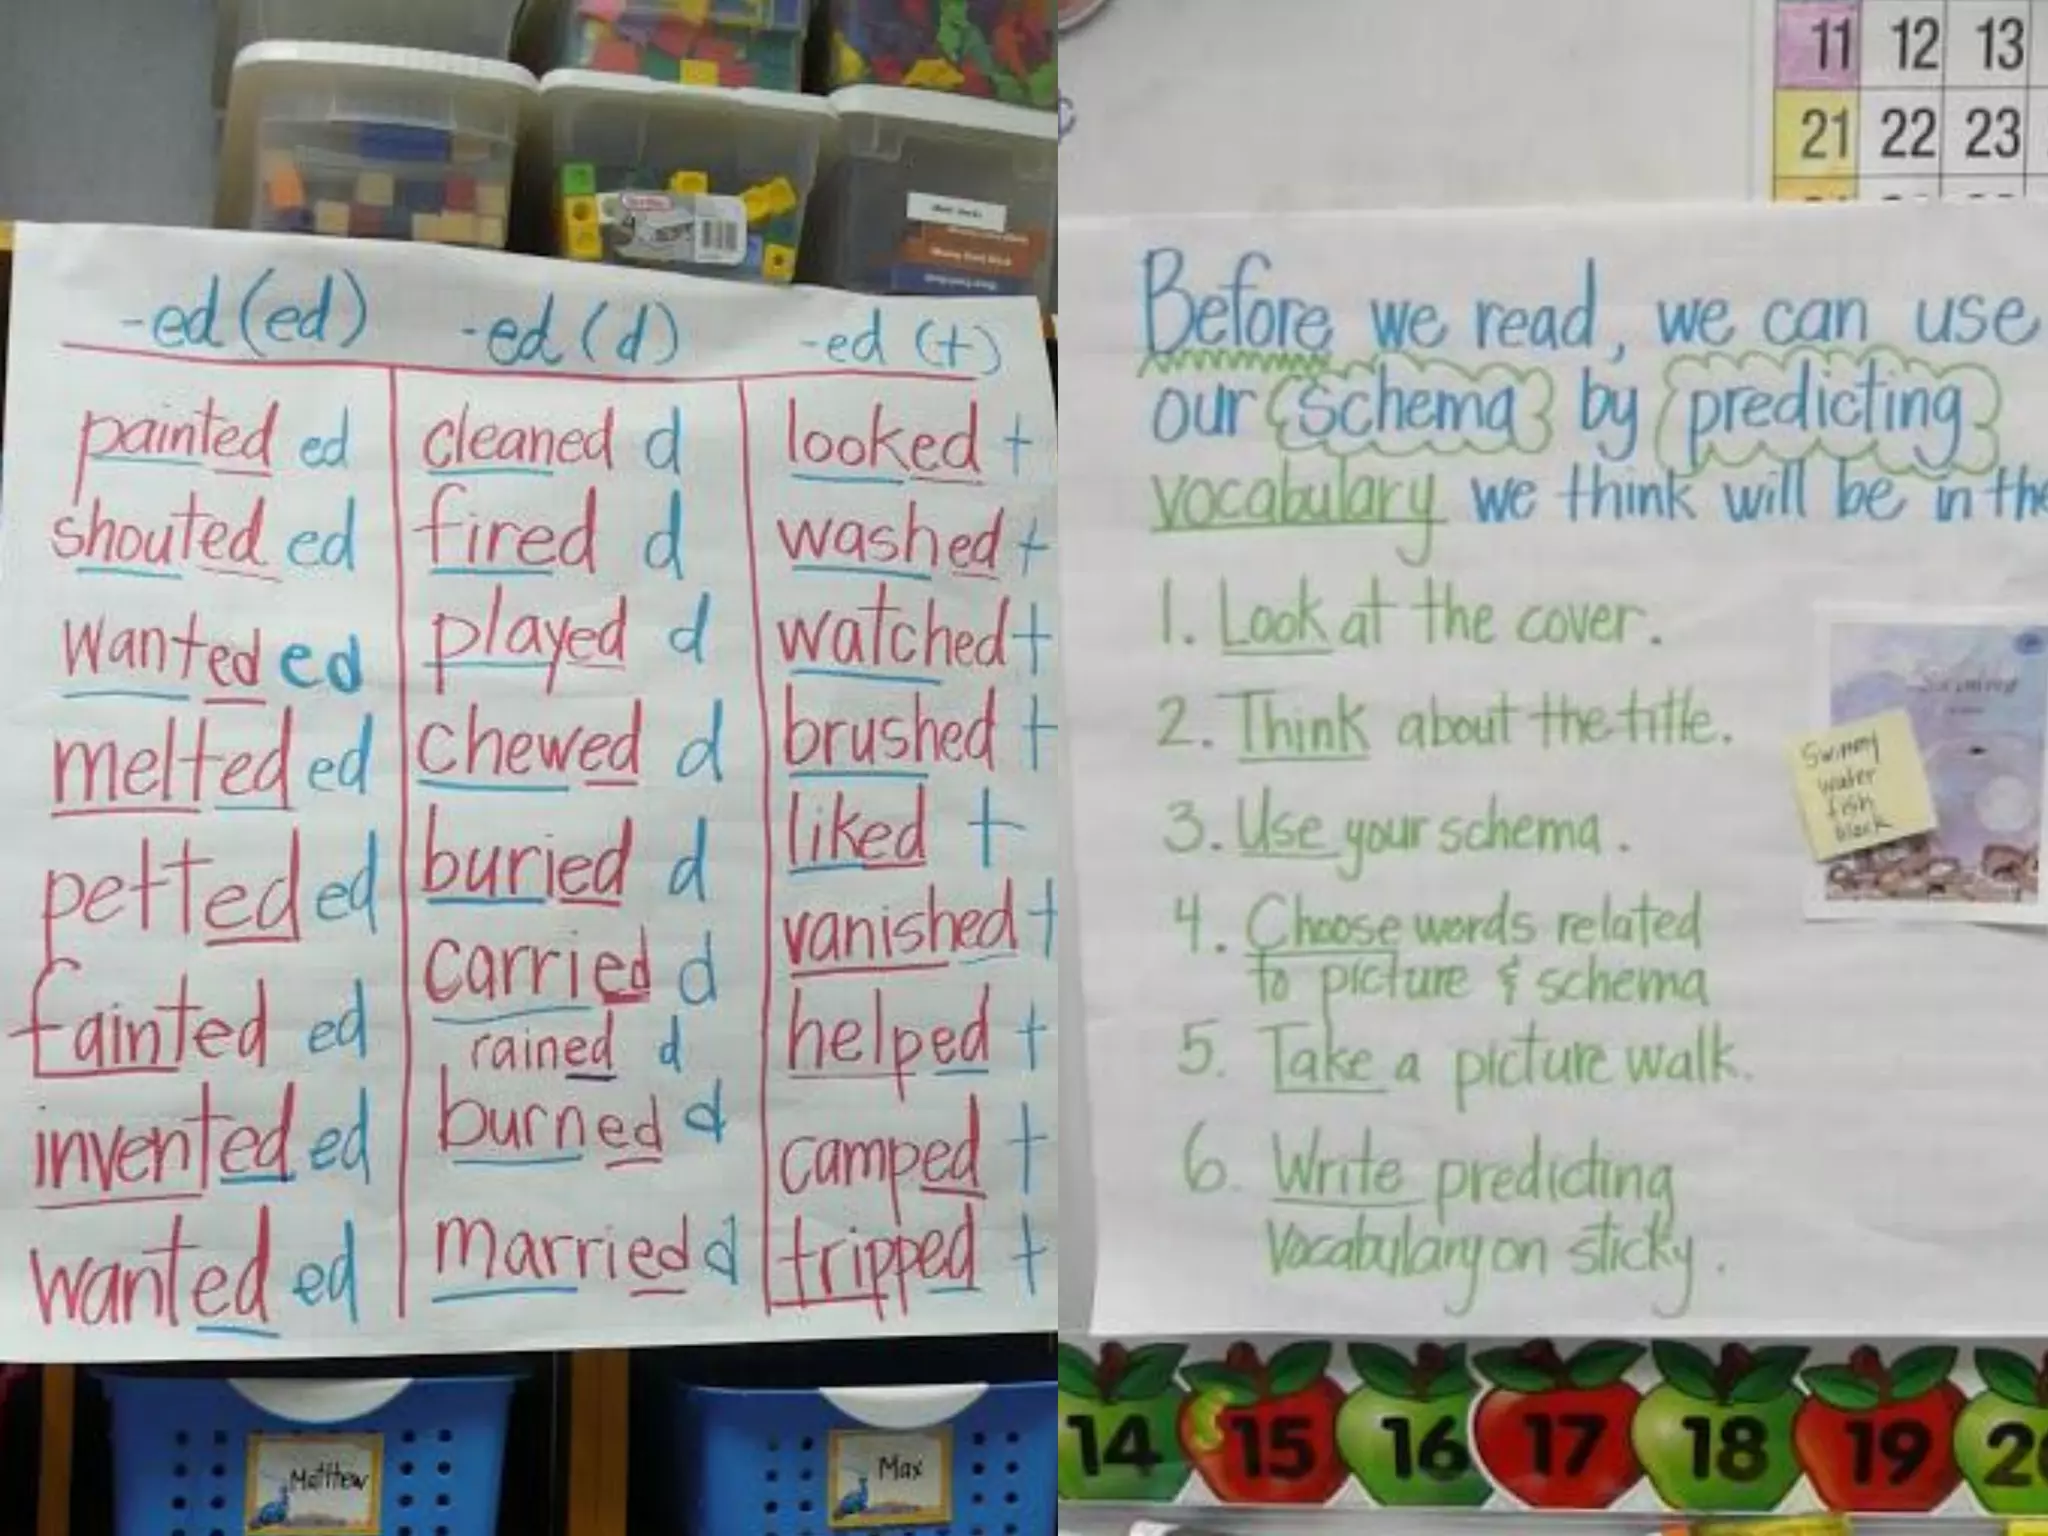 -ed (ed) -ed (d) -ed (t)
painted ed cleaned d looked t
shouted ed fired d washed t
wanted ed played d watched t
melted ed chewed d brushed t
petted ed buried d liked t
fainted ed carried d vanished t
rained d helped t
invented ed burned d camped t
wanted ed married d tripped t
Matthew
Max
11 12 13
21 22 23
Before we read, we can use
our schema by predicting
vocabulary we think will be in the
1. Look at the cover.
2. Think about the title.
3. Use your schema.
4. Choose words related
to picture & schema
5. Take a picture walk.
6. Write predicting
vocabulary on sticky.
Swimmy
water
fish
black
14 15 16 17 18 19